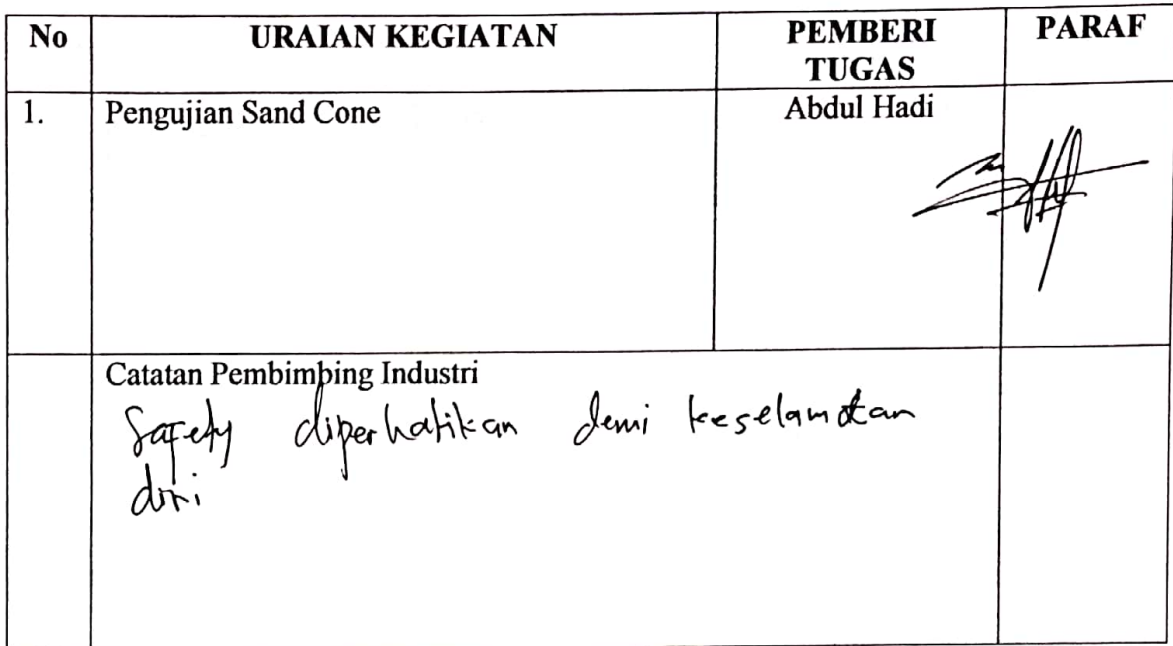 No URAIAN KEGIATAN PEMBERI TUGAS PARAF
1. Pengujian Sand Cone Abdul Hadi
Catatan Pembimbing Industri
Safety diperhatikan demi keselamatan
diri